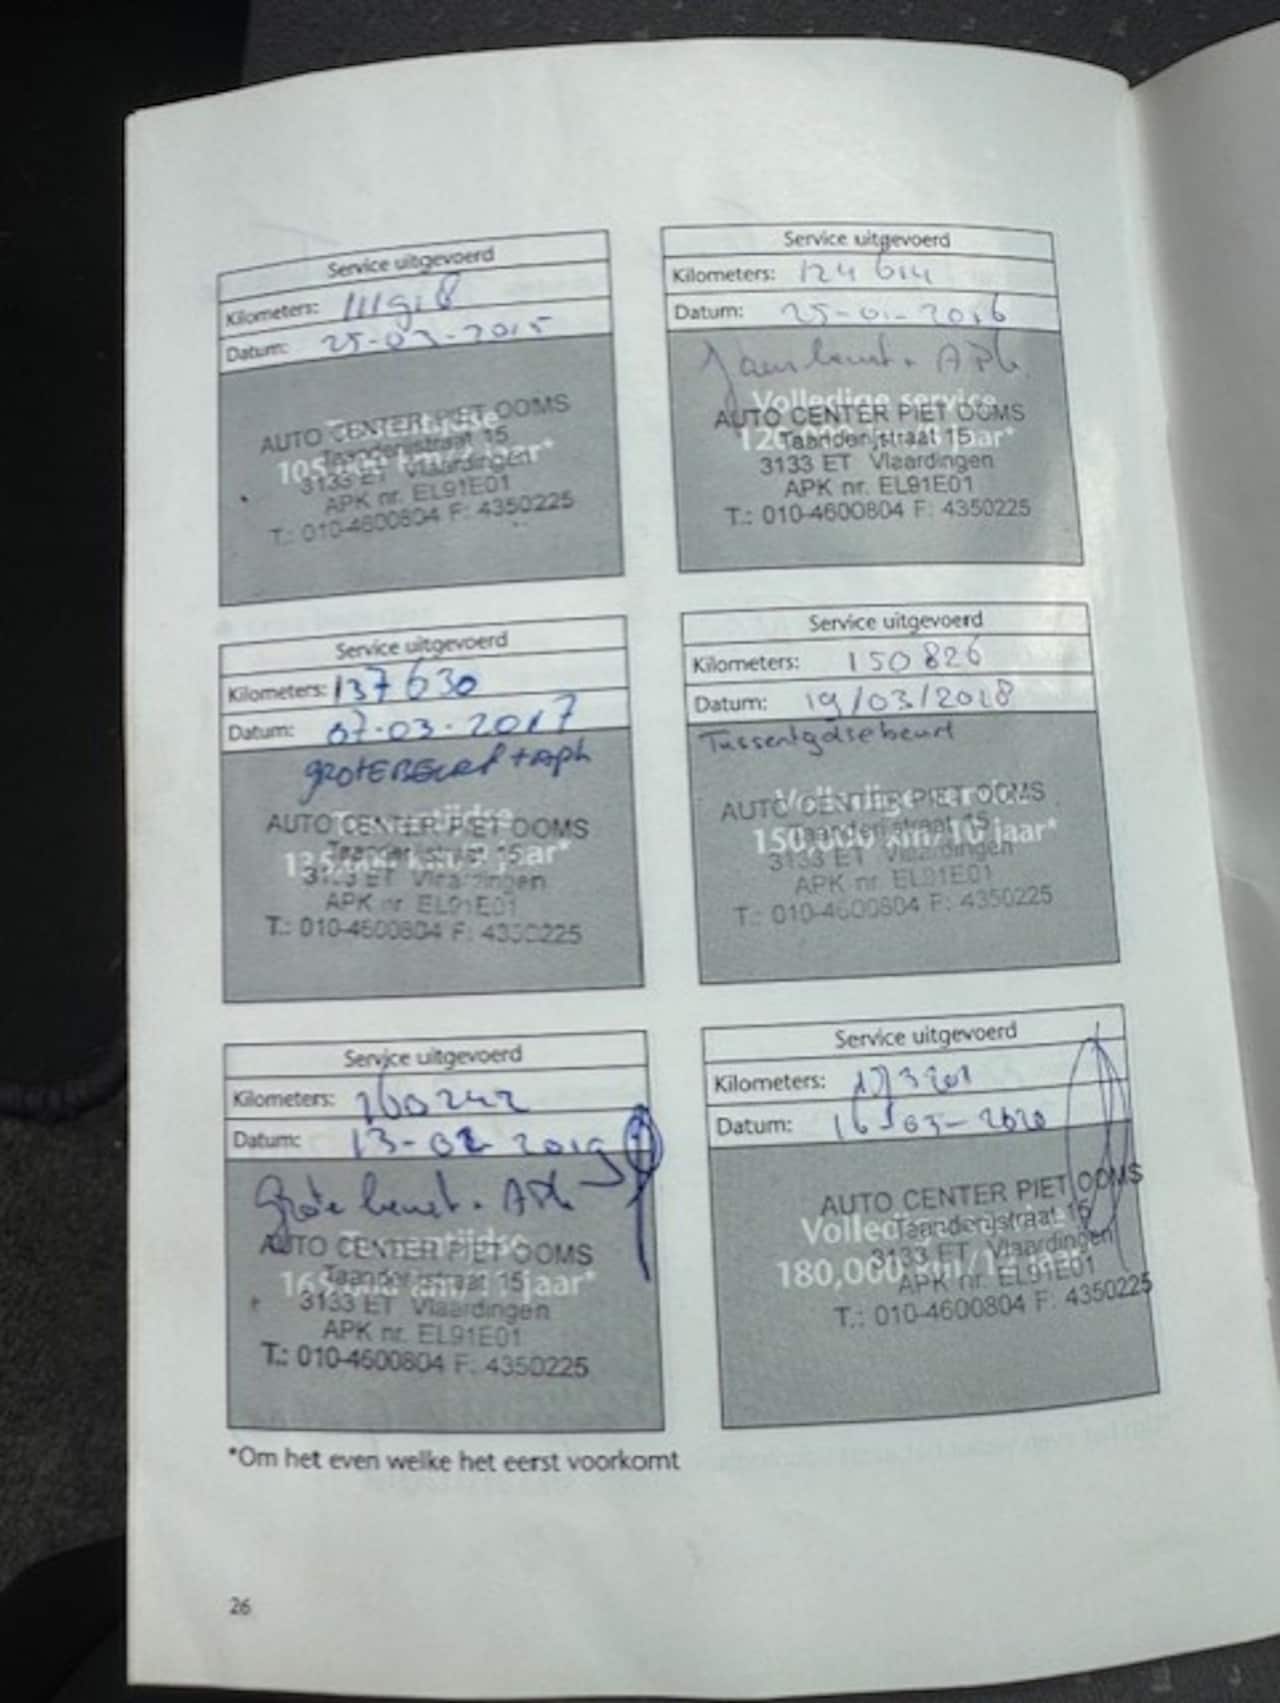 Service uitgevoerd
Kilometers: 111918
Datum: 25-03-2015
Tussentijdse
105,000 km/7 jaar*
AUTO CENTER PIET OOMS
Taanderijstraat 15
3133 ET Vlaardingen
APK nr. EL91E01
T.: 010-4600804 F: 4350225
Service uitgevoerd
Kilometers: 124 614
Datum: 25-01-2016
Jaarsbeurt + APK
Volledige service
120,000 km/8 jaar*
AUTO CENTER PIET OOMS
Taanderijstraat 15
3133 ET Vlaardingen
APK nr. EL91E01
T.: 010-4600804 F: 4350225
Service uitgevoerd
Kilometers: 137 630
Datum: 07-03-2017
GROTE BEURT + APK
Tussentijdse
135,000 km/9 jaar*
AUTO CENTER PIET OOMS
Taanderijstraat 15
3133 ET Vlaardingen
APK nr EL91E01
T.: 010-4600804 F: 4350225
Service uitgevoerd
Kilometers: 150 826
Datum: 19/03/2018
Tussentydse beurt
Volledige service
150,000 km/10 jaar*
AUTO CENTER PIET OOMS
Taanderijstraat 15
3133 ET Vlaardingen
APK nr. EL91E01
T.: 010-4600804 F: 4350225
Service uitgevoerd
Kilometers: 160242
Datum: 13-02-2019
Grote beurt + APK
Tussentijdse
165,000 km/11 jaar*
AUTO CENTER PIET OOMS
Taanderijstraat 15
3133 ET Vlaardingen
APK nr. EL91E01
T.: 010-4600804 F: 4350225
Service uitgevoerd
Kilometers: 173201
Datum: 16-03-2020
Volledige service
180,000 km/12 jaar*
AUTO CENTER PIET OOMS
Taanderijstraat 15
3133 ET Vlaardingen
APK nr. EL91E01
T.: 010-4600804 F: 4350225
*Om het even welke het eerst voorkomt
26